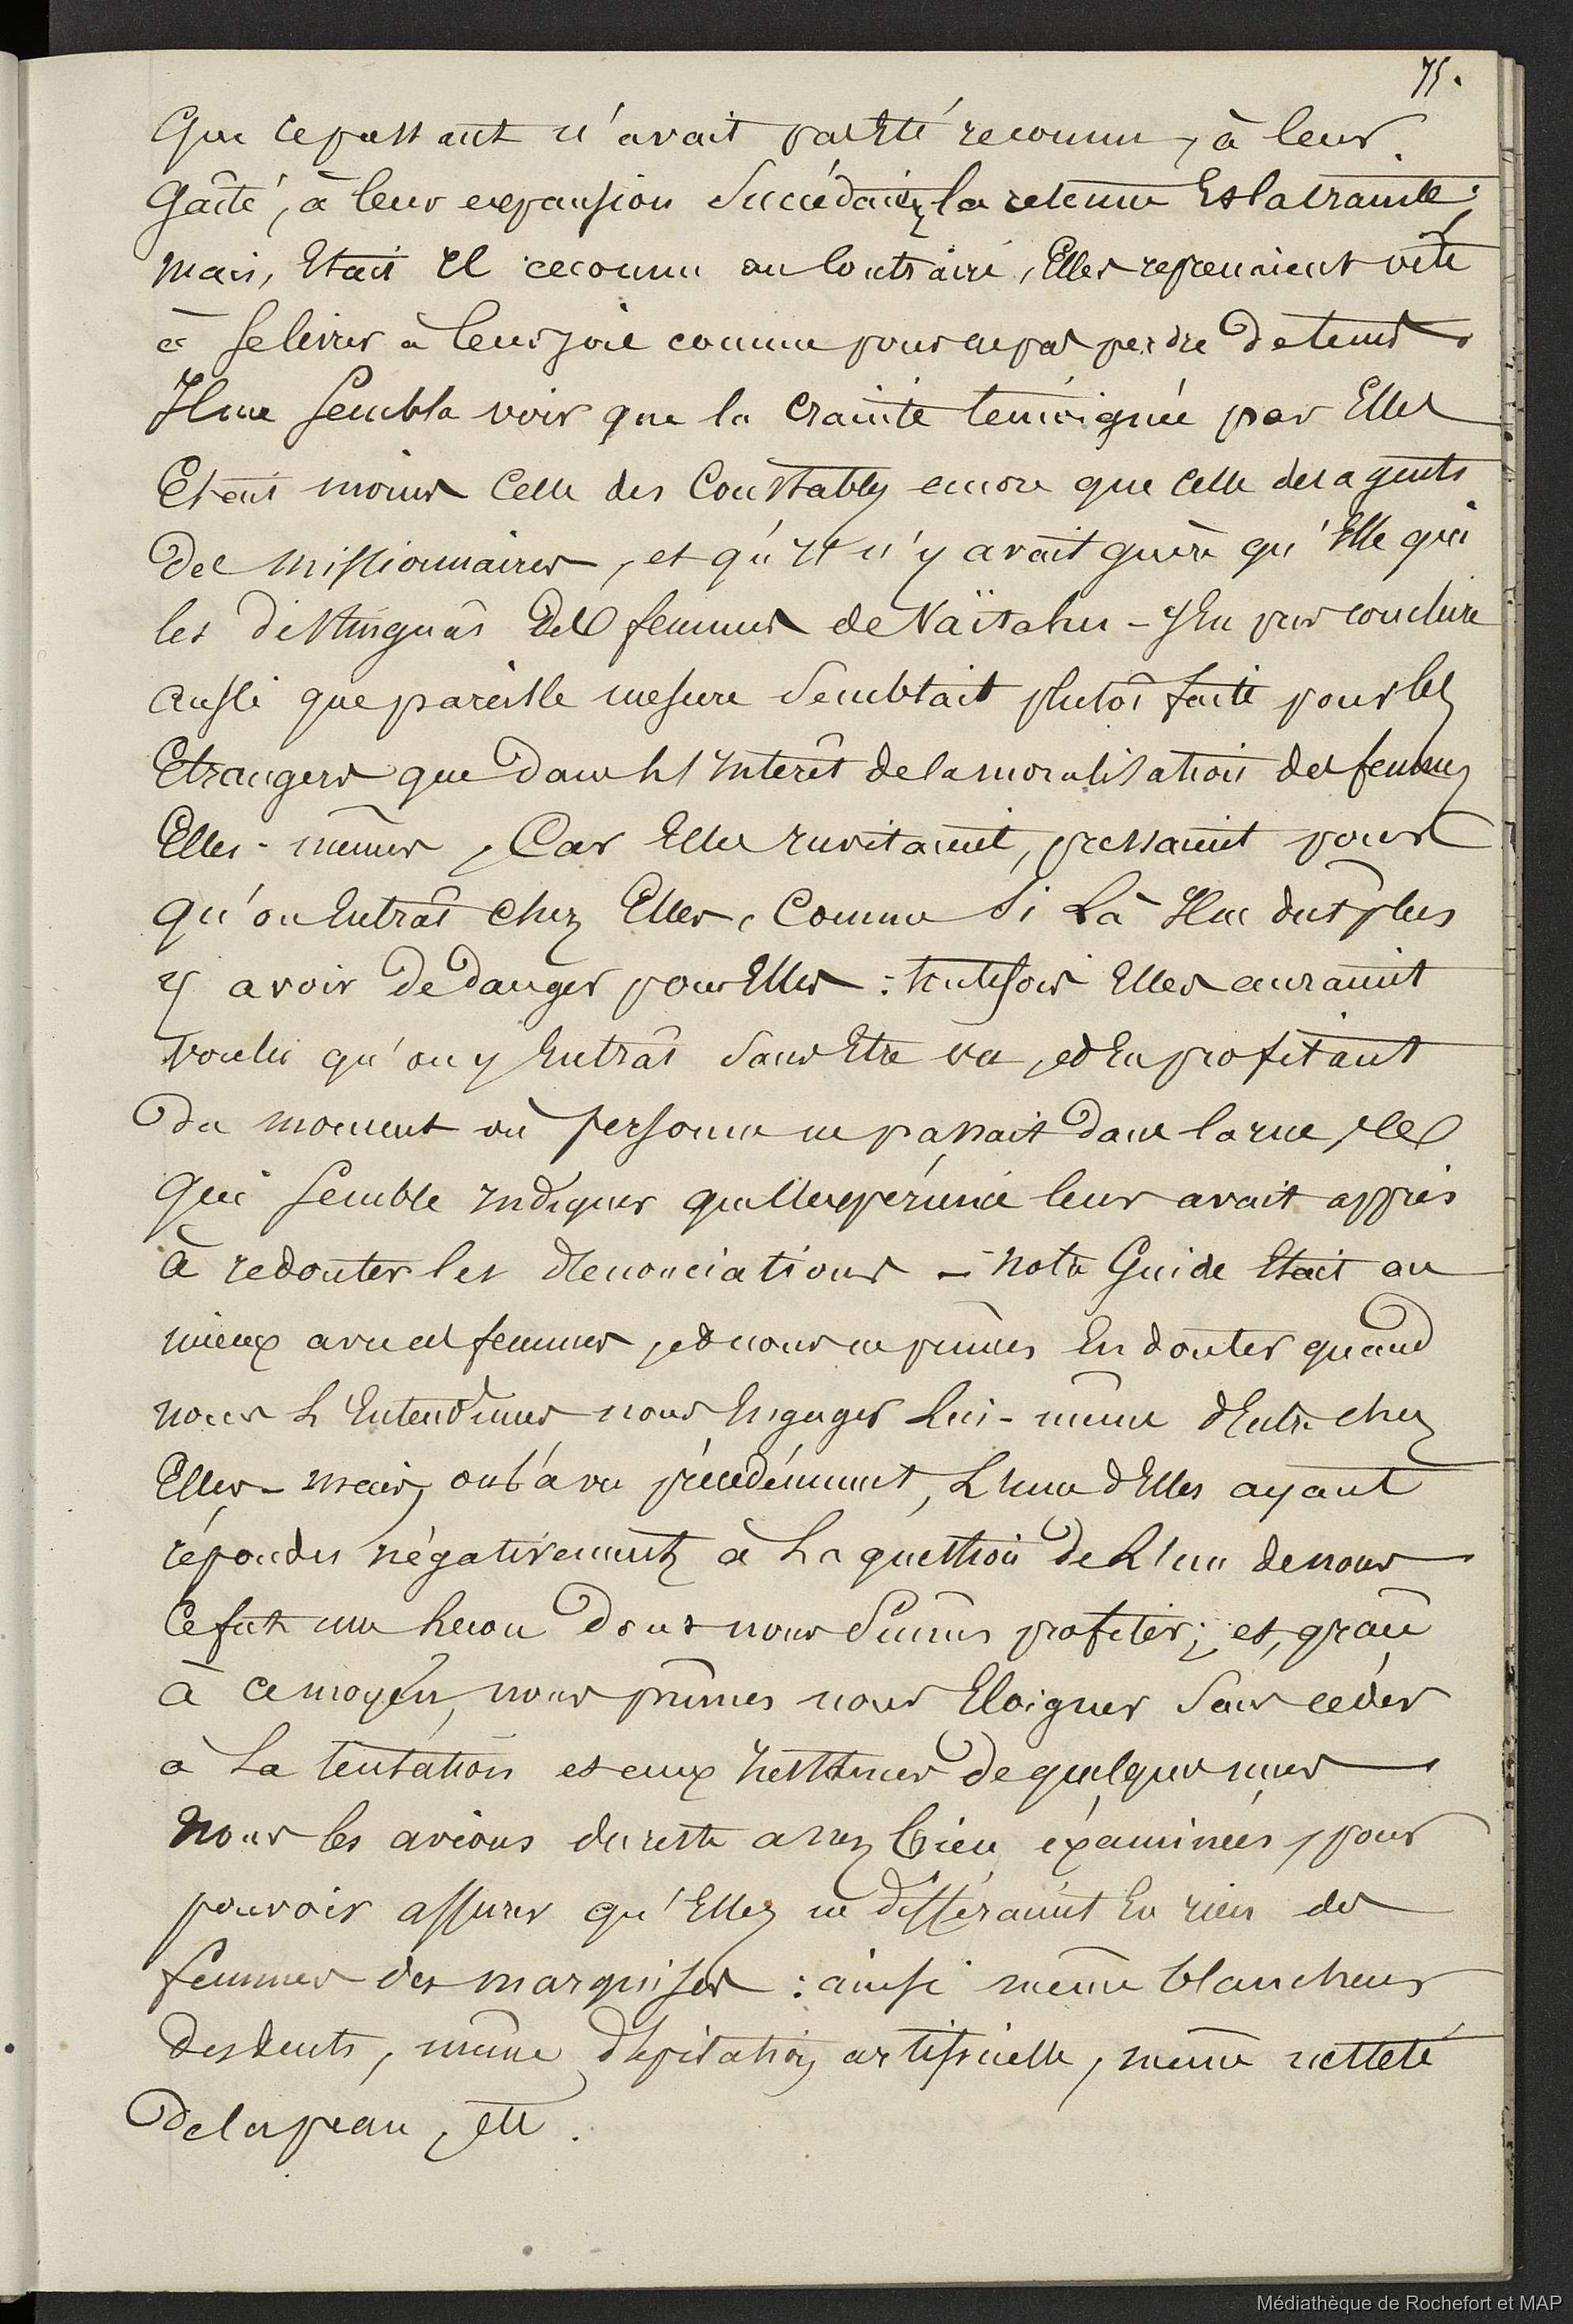 75.
Que ce passant n'avait pas été reconnu, à leur
Gaîté, à leur expansion Succédaient la retenue Et la crainte;
mais, Etait Il reconnu au Contraire, Elles reprenaient vite
à Se livrer à leur joie comme pour ne pas perdre de tems.
Il me Sembla voir que la Crainte témoignée par Elles
Etait moins Celle des Constables encore que celle des agents
Des missionnaires, et qu'Il n'y avait guère qu'Elle qui
les distinguât Des femmes de Vaïtahu – J'En pus conclure
aussi que pareille mesure Semblait plutôt faite pour les
Etrangers que Dans L'Intérêt de la moralisation des femmes
Elles-mêmes, Car Elles Invitaient, pressaient pour
qu'on Entrât Chez Elles, Comme Si Là Il ne dut plus
y avoir De Danger pour Elles : toutefois Elles auraient
voulu qu'on y Entrât Sans Etre vu, et En profitant
Du moment où personne ne passait Dans la rue, Ce
Qui Semble Indiquer que l'expérience leur avait appris
à redouter les dénonciations – Notre Guide Etait au
mieux avec ces femmes, et nous ne pûmes En douter quand
nous L'Entendîmes nous Engager Lui-même d'Entrer chez
Elles – mais, on l'a vu précédemment, L'une d'Elles ayant
répondu négativement à La question de L'un de nous
Ce fut une Leçon Dont nous Sûmes profiter; et, grâce
à ce moyen, nous pûmes nous Eloigner Sans céder
à La tentation et aux Instances de quelques unes
Nous les avions du reste assez bien éxaminées, pour
pouvoir assurer qu'Elles ne différaient En rien des
femmes des marquises : ainsi même blancheur
des dents, même dépilation artificielle, même netteté
De la peau, Etc.
Médiathèque de Rochefort et MAP